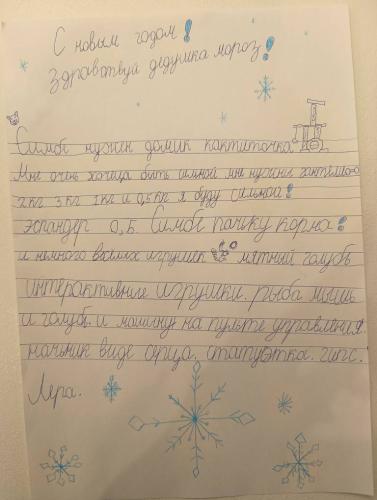 С новым годом!
Здравствуй дедушка мороз!
Симбе нужен домик кактиточка
Мне очень хочица быть силной мне нужны гантели
2 кг 3 кг 1 кг и 0,5 кг я буду сильной!
эспандер 0,5 Симбе пачку корма!
и немного веселых игрушек мятный голубь
интерактивние игрушки. рыба мышь
и голубь и машинку на пульте управления.
начник виде серца, статуэтка. гипс.
Лера.